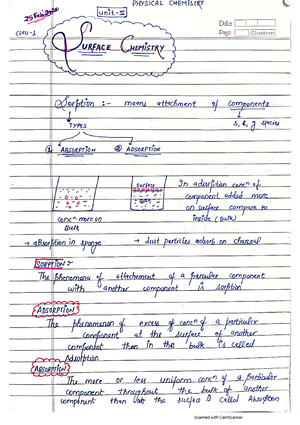 PHYSICAL CHEMISTRY
25 Feb
unit-II
Date
Page
Class-1
SURFACE CHEMISTRY
Sorption :- means attachment of components
s, l, g species
TYPES
① ABSORPTION ② ADSORPTION
surface
Bulk
In adsorption concⁿ of
component added more
on surface compare to
inside (Bulk)
concⁿ more on
Bulk
→ absorption in sponge → dust particles adsorb on charcoal
SORPTION :-
The phenomena of attachement of a particular component
with another component is sorption
ADSORPTION :
The phenomenon of excess of concⁿ of a particular
component at the surface of another
component than in the bulk is called
Adsorption
ABSORPTION
The more or less uniform concⁿ of a particular
component throughout the bulk of another
component than the surface is called Absorption
Scanned with CamScanner